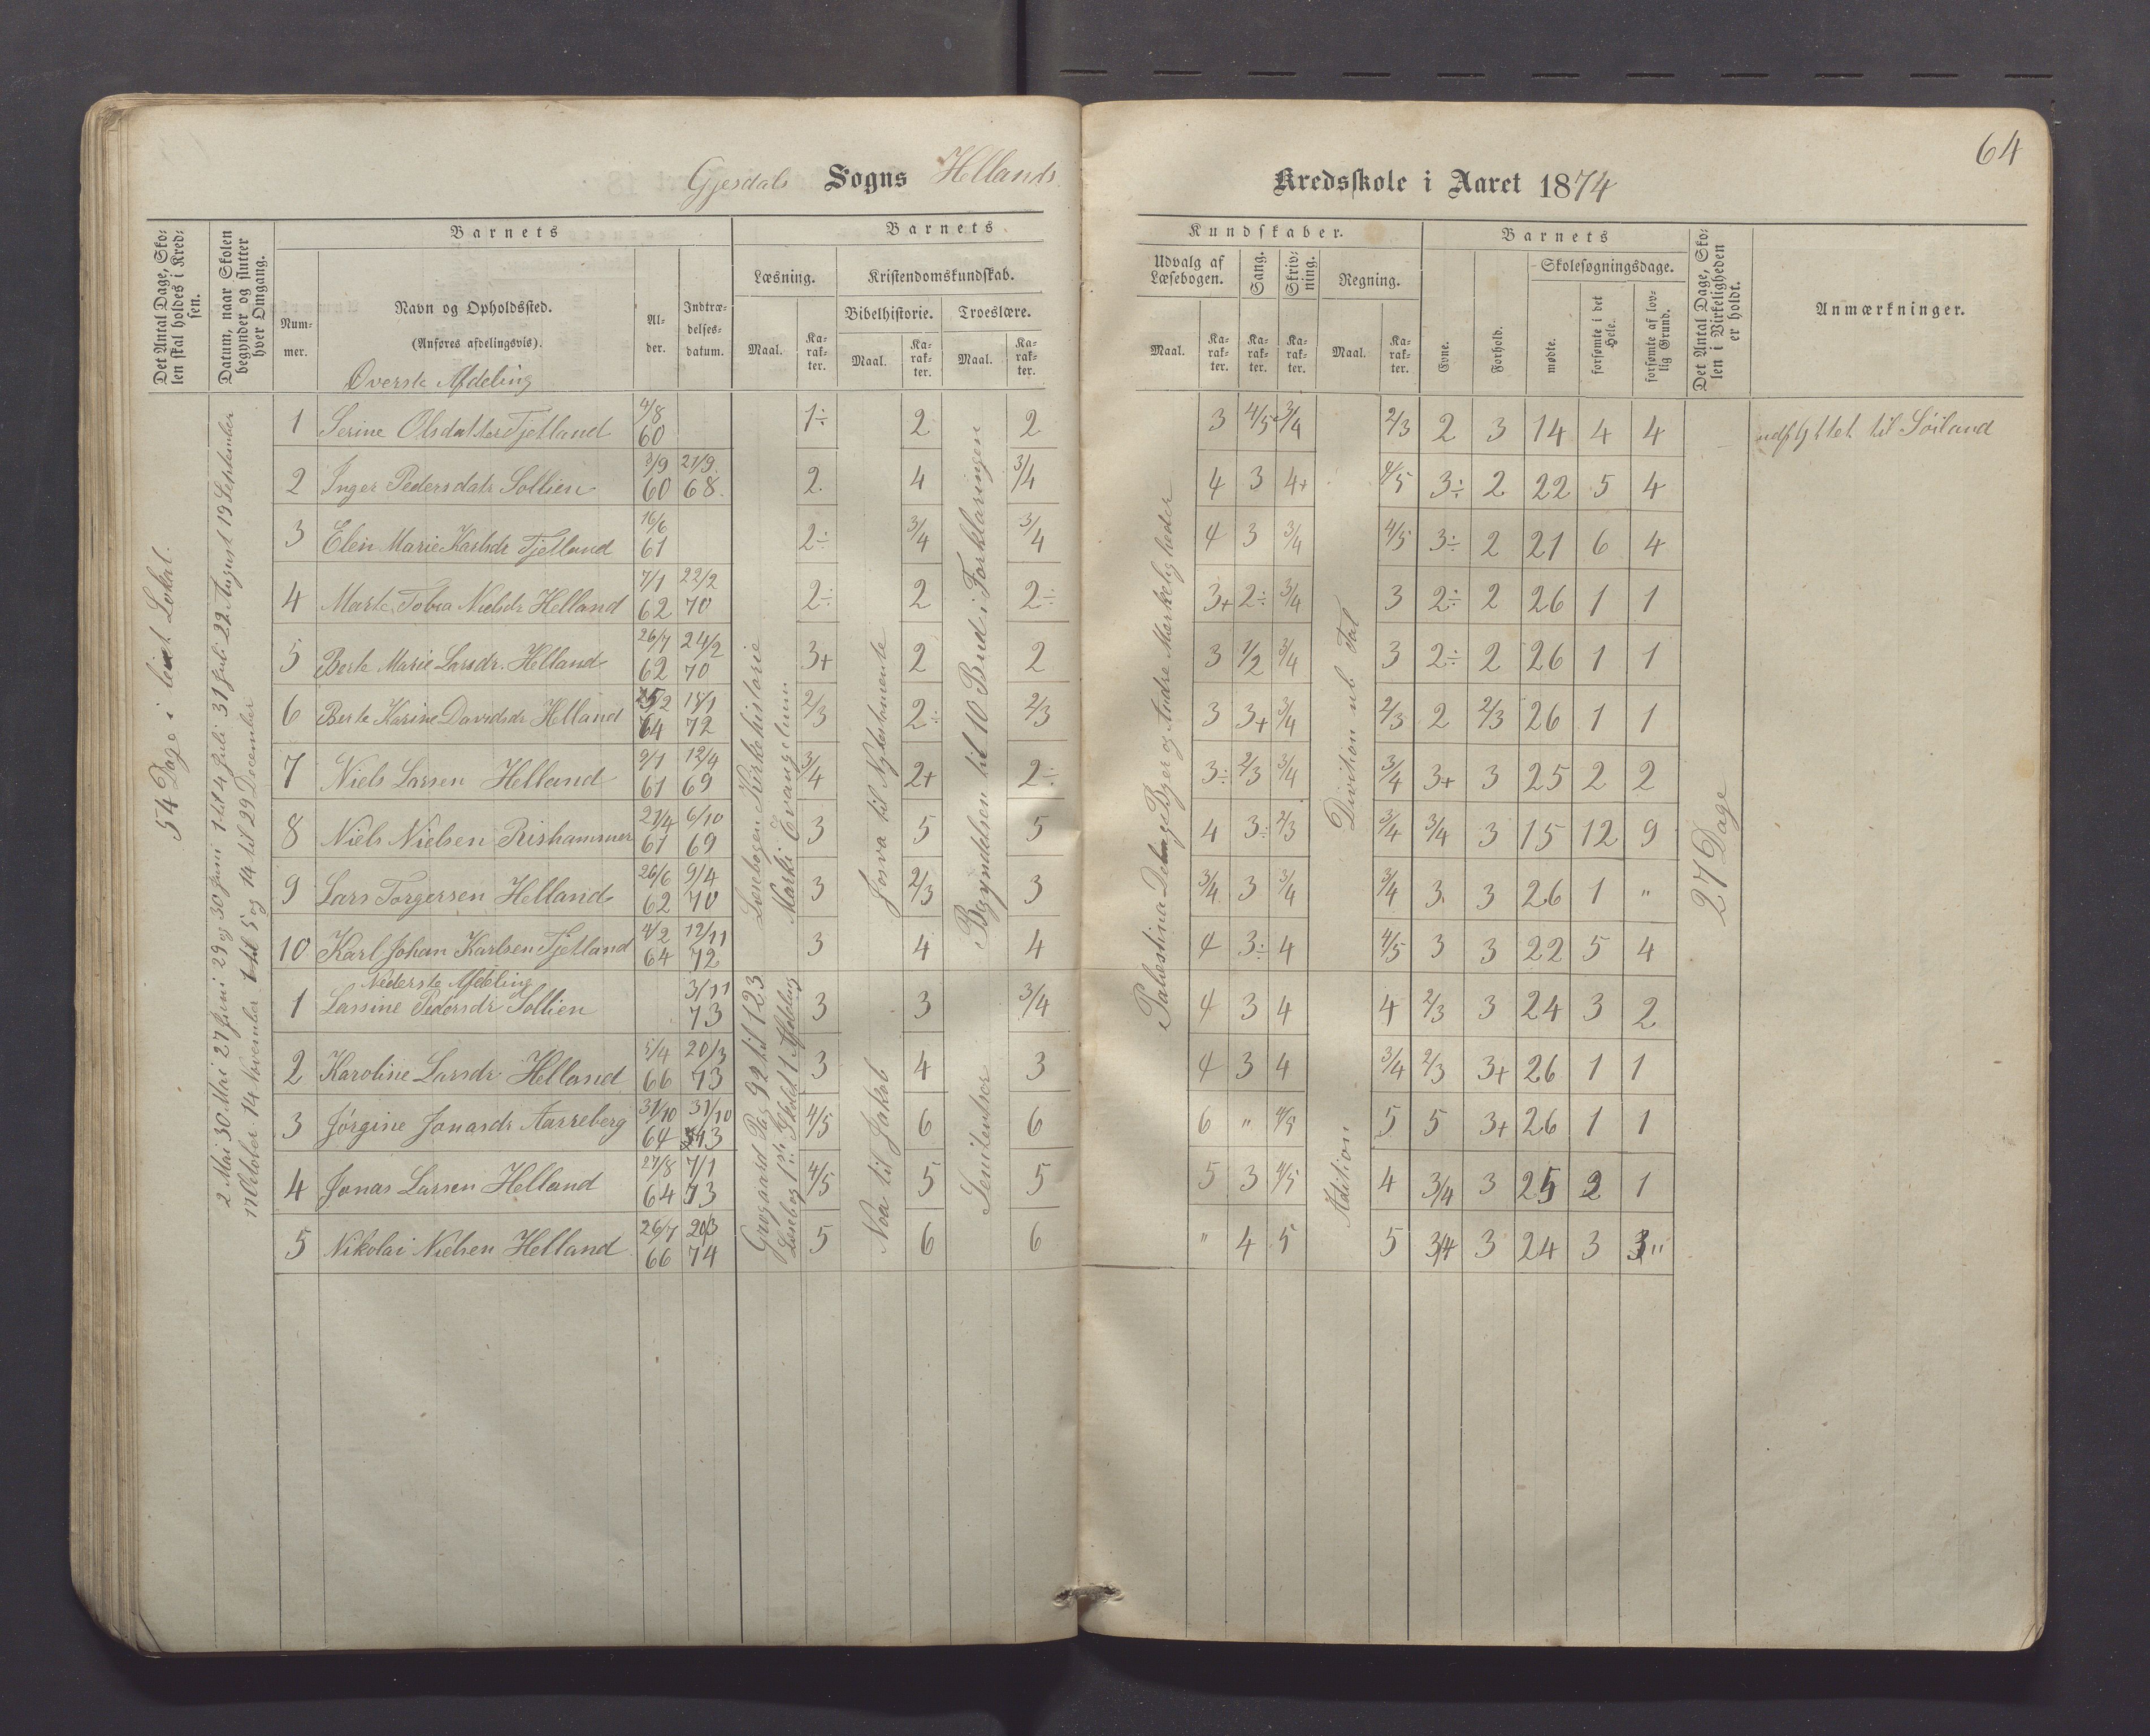 64
Gjesdals Sogns Hellands Kredsskole i Aaret 1874
Det Antal Dage, Skolen skal holdes i Kredsen.
Datum, naar Skolen begynder og slutter hver Omgang.
Barnets
Nummer.
Navn og Opholdssted.
(Anføres afdelingsvis).
Alder.
Indtrædelsesdatum.
Barnets
Læsning.
Maal.
Karakter.
Kristendomskundskab.
Bibelhistorie.
Maal.
Karakter.
Troeslære.
Maal.
Karakter.
Kundskaber.
Udvalg af Læsebogen.
Maal.
Karakter.
Sang.
Karakter.
Skrivning.
Karakter.
Regning.
Maal.
Karakter.
Barnets
Evne.
Forhold.
Skolesøgningsdage.
mødte.
forsømte i det Hele.
forsømte af lovlig Grund.
Det Antal Dage, Skolen i Virkeligheden er holdt.
Anmærkninger.
54 Dage i leiet Lokal.
2 Mai 30 Mai 27 Juni 29 og 30 Juni 1 til 4 Juli 31 Juli 22 August 19 September
17 October 14 November 1 til 5 og 14 til 29 December
Læsebogen Kirkehistorie
Marki Evangelium
Josva til Nytestamente
Begyndelsen til 10 Bud i Forklaringen
Palæstina Dets Byer og Andre Mærkeligheder
Division ub Tal
27 Dage
Øverste Afdeling
1 Serine Olsdatter Fjetland 4/8 60 1÷ 2 2 3 4/5 3/4 2/3 2 3 14 4 4 udflyttet til Söiland
2 Inger Pedersdatr Sollien 3/9 60 21/9 68. 2. 4 3/4 4 3 4+ 4/5 3÷ 2 22 5 4
3 Elen Marie Karlsdr Fjetland 16/6 61 2÷ 3/4 3/4 4 3 3/4 4/5 3÷ 2 21 6 4
4 Marte Tobia Nielsdr Helland 7/1 62 22/2 70 2÷ 2 2÷ 3+ 2÷ 3/4 3 2÷ 2 26 1 1
5 Berte Marie Larsdr. Helland 26/7 62 24/2 70 3+ 2 2 3 1/2 3/4 3 2÷ 2 26 1 1
6 Berte Karine Davidsdr Helland 25/2 64 18/1 72 2/3 2÷ 2/3 3 3+ 3/4 2/3 2 2/3 26 1 1
7 Niels Larsen Helland 9/1 61 12/4 69 3/4 2+ 2÷ 3÷ 2/3 3/4 3/4 3+ 3 25 2 2
8 Niels Nielsen Rishammer 21/4 61 6/10 69 3 5 5 4 3÷ 2/3 3/4 3/4 3 15 12 9
9 Lars Torgersen Helland 26/6 62 9/4 70 3 2/3 3 3/4 3 3/4 3/4 3 3 26 1 "
10 Karl Johan Karlsen Fjetland 4/2 64 12/11 72 3 4 4 4 3÷ 4 4/5 3 3 22 5 4
Nederste Afdeling
Grogaard Pag 92 til 123
Læsebog 1ste Skolet 1 Afdeling
Noa til Jakob
Senitentser
Adition
1 Lassine Pedersdr Sollien 3/11 73 3 3 3/4 4 3 4 4 2/3 3 24 3 2
2 Karoline Larsdr Helland 5/4 66 20/3 73 3 4 3 4 3 4 3/4 2/3 3+ 26 1 1
3 Jørgine Jonasdr Aarreberg 31/10 64 31/10 73 4/5 6 6 6 " 4/5 5 5 3+ 26 1 1
4 Jonas Larsen Helland 27/8 64 7/1 73 4/5 5 5 5 3 4/5 4 3/4 3 25 2 1
5 Nikolai Nielsen Helland 26/7 66 20/3 74 5 6 6 " 4 5 5 3/4 3 24 3 3 "